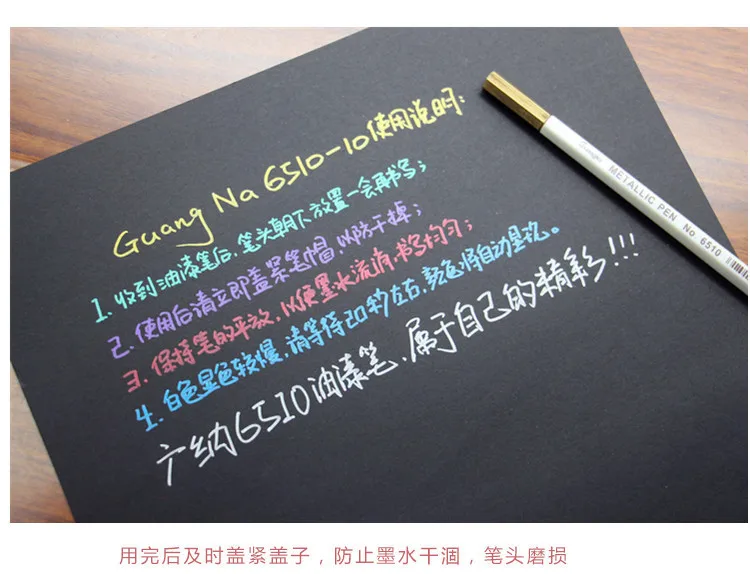 Guang Na 6510-10使用说明:
1.收到油漆笔后,笔头朝下放置一会再书写;
2.使用后请立即盖紧笔帽,以防干掉;
3.保持笔的平放,以便墨水流有书写均匀;
4.白色显色较慢,请等待20秒左右,颜色将自动呈现。
广纳6510油漆笔.属于自己的精彩!!!
METALLIC PEN No 6510
用完后及时盖紧盖子，防止墨水干涸，笔头磨损